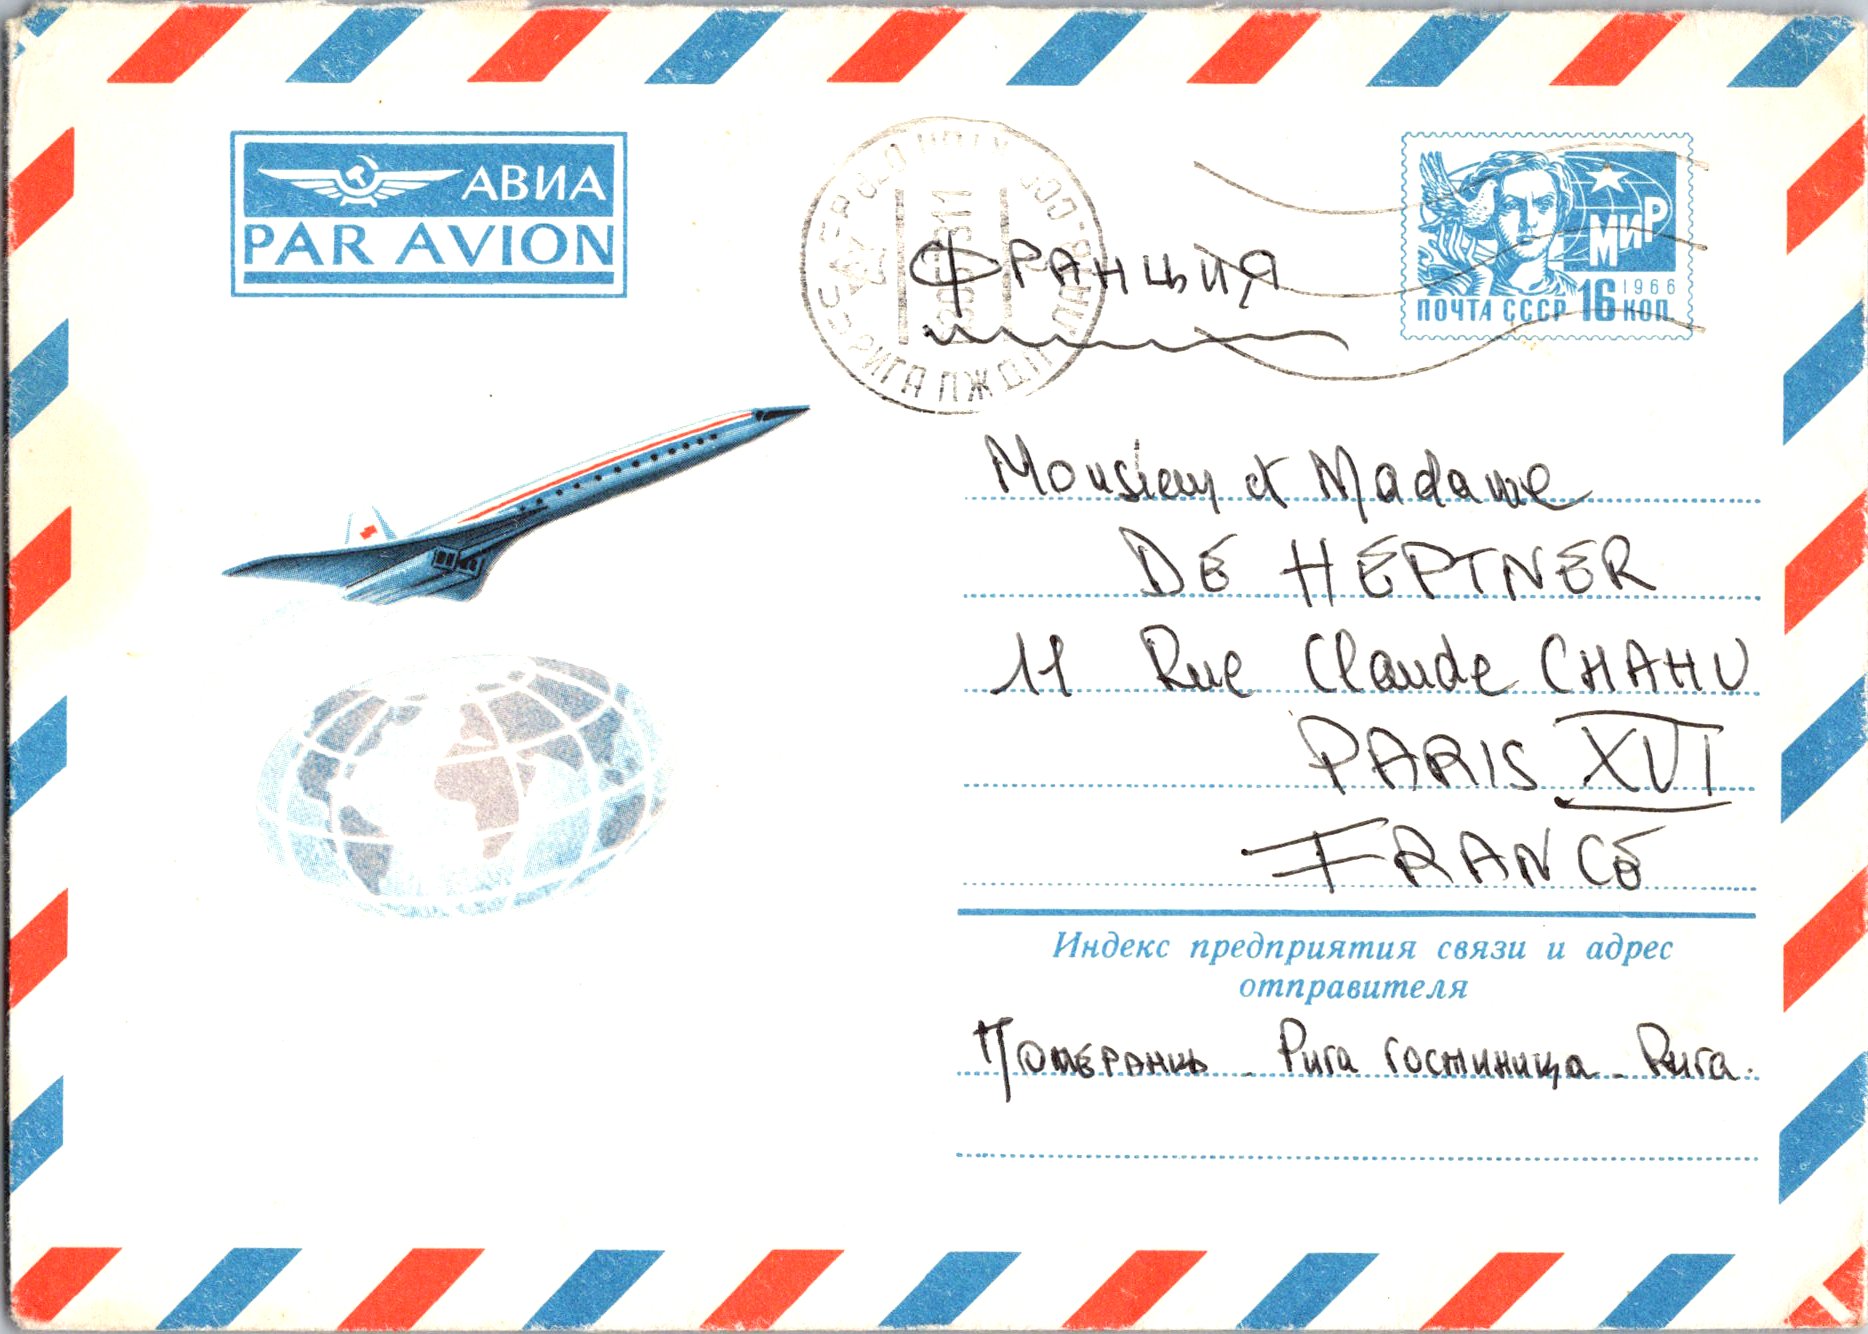 АВИА
PAR AVION
РИГА ПЖДП
МИР
1966
ПОЧТА СССР 16 КОП.
Франция
Monsieur et Madame
DE HEPTNER
11 Rue Claude CHAHU
PARIS XVI
FRANCE
Индекс предприятия связи и адрес
отправителя
Померанць - Рига гостиница - Рига.